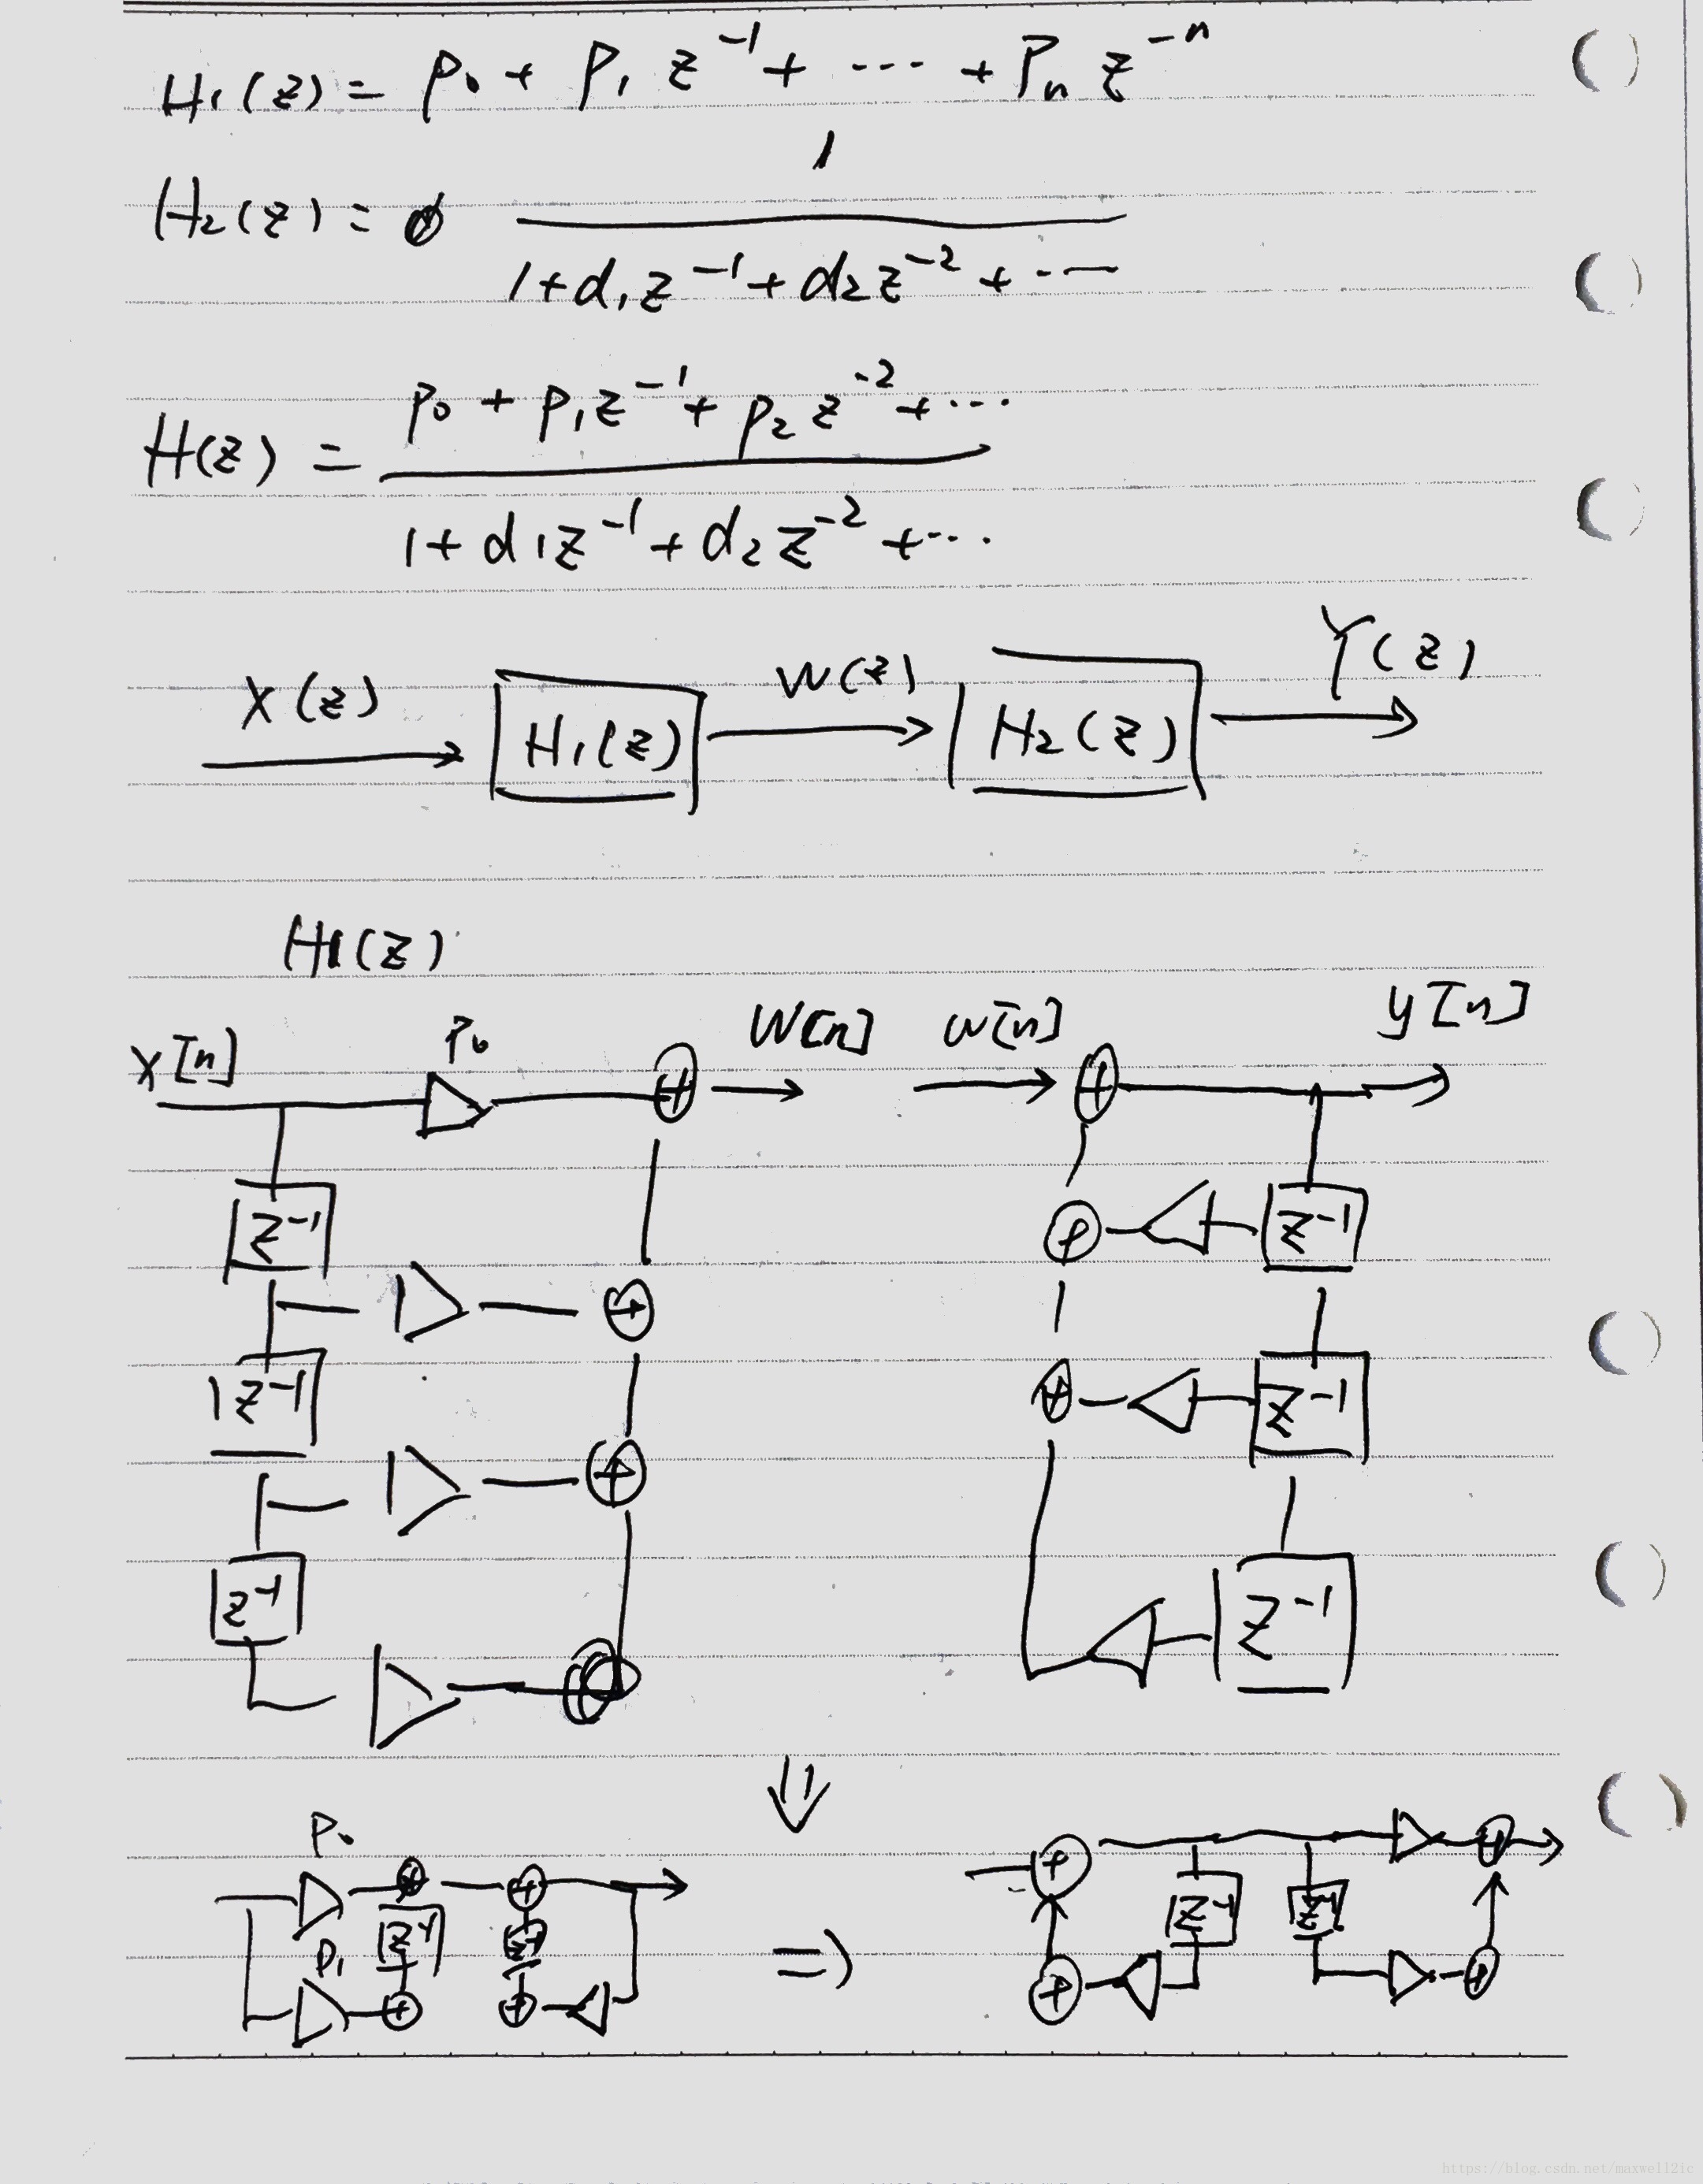 H1(z) = p0 + p1 z^-1 + ... + Pn z^-n
H2(z) = 1 / (1+d1z^-1+d2z^-2+...)
H(z) = (p0 + p1z^-1 + p2z^-2 + ...) / (1+d1z^-1+d2z^-2+...)
X(z) H1(z) W(z) H2(z) Y(z)
H1(z)
x[n] P0 + W[n] w[n] + y[n]
z^-1 + z^-1
+
z^-1 + z^-1
+
z^-1 z^-1
⇓
P0
+ + +
z^-1 z^-1 z^-1 z^-1
P1 ⇒
+ + + +
https://blog.csdn.net/maxwell2ic